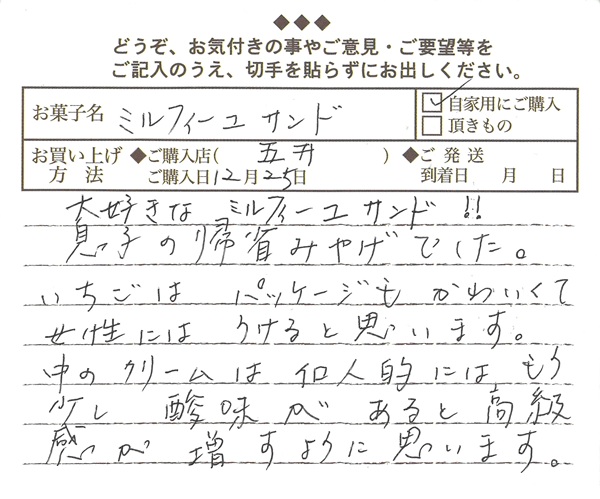 ◆◆◆
どうぞ、お気付きの事やご意見・ご要望等を
ご記入のうえ、切手を貼らずにお出しください。
お菓子名 ミルフィーユ サンド
自家用にご購入
頂きもの
お買い上げ方法 ◆ご購入店( 五升 ) ◆ご発送
ご購入日 12月25日 到着日 月 日
大好きな ミルフィーユ サンド!!
息子の帰省みやげでした。
いちごは パッケージも かわいくて
女性には うけると思います。
中の クリームは 個人的には、もう
少し 酸味が あると 高級
感が 増すように 思います。